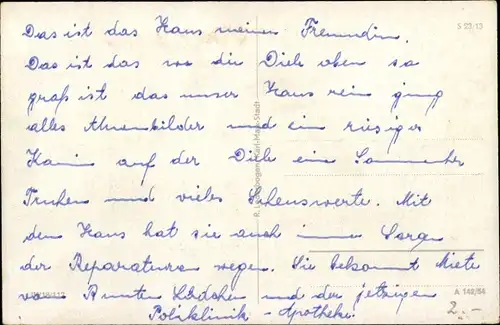 S 29/13
Das ist das Haus meiner Freundin.
Das ist das wo die Diele oben so
groß ist das unser Haus rein ging
alles Ahnenbilder und ein riesiger
Kamin auf der Diele eine
Truhen und vieles Sehenswerte. Mit
dem Haus hat sie auch immer Sorgen
der Reparaturen wegen. Sie bekommt Miete
von Bunten Lädchen und der jetzigen
Poliklinik - Apotheke.
Karl-Marx-Stadt
A 149/54
2.-